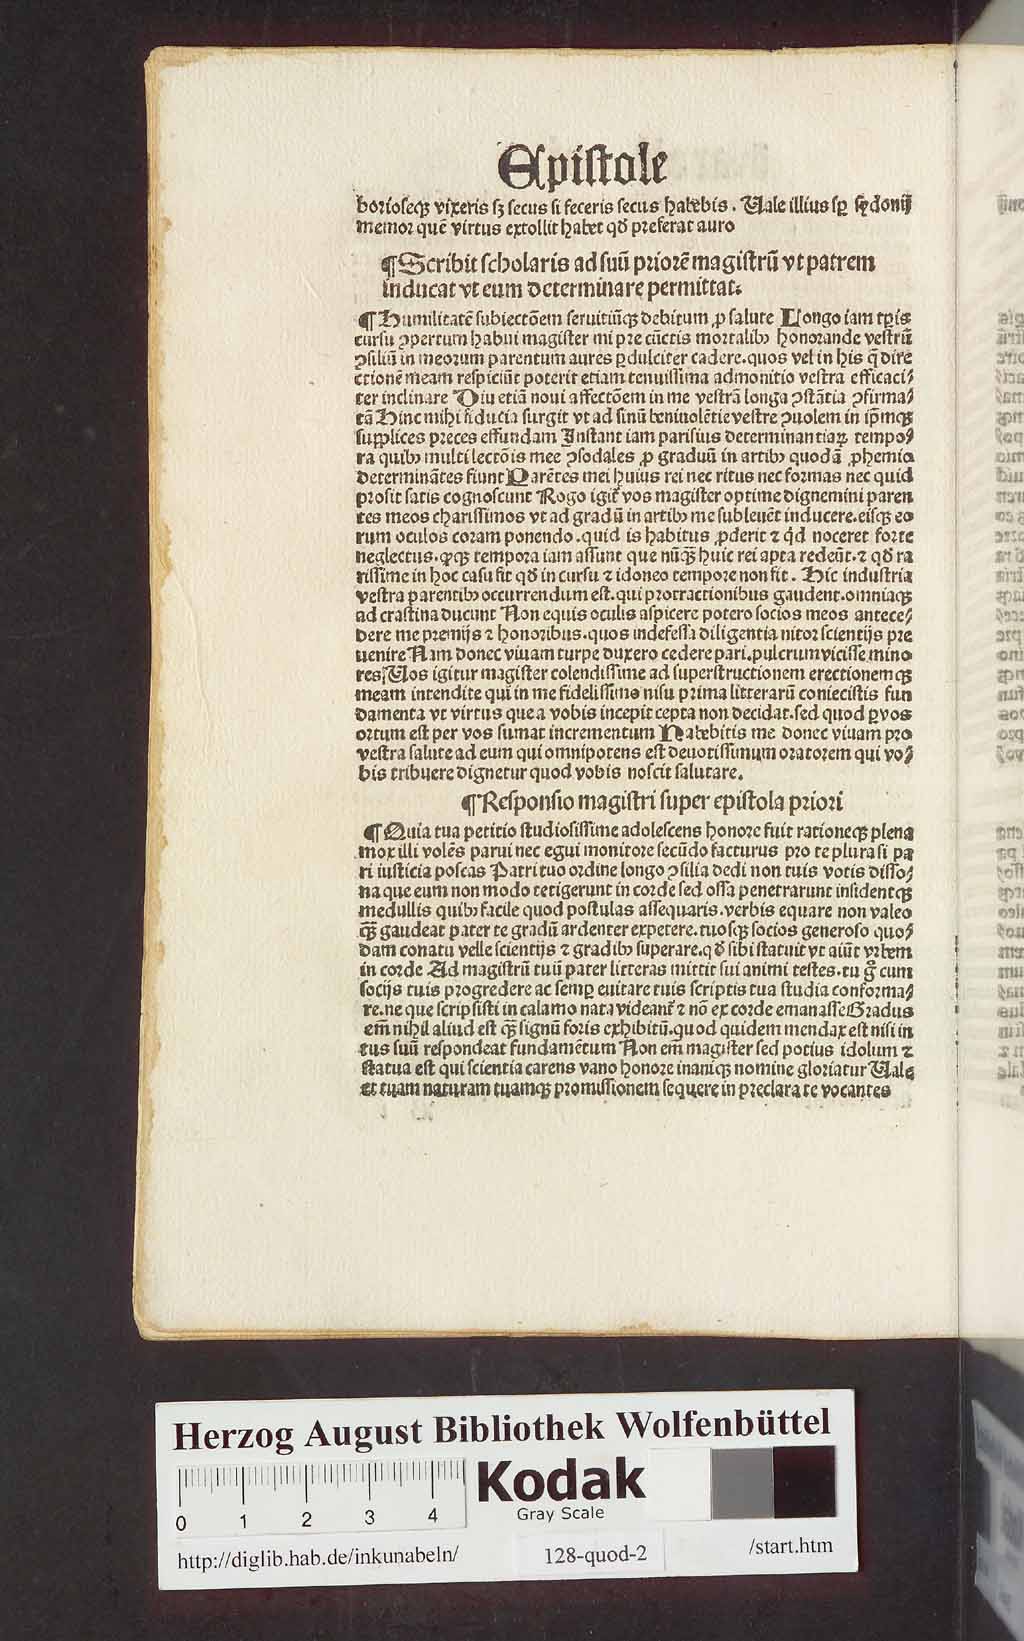 Epistole
borioseqꝫ vixeris sꝫ secus si feceris secus habebis. Uale illius sꝑ
memor quē virtus extollit habet qđ preferat auro
¶ Scribit scholaris ad suū priorē magistrū vt patrem
inducat vt eum determinare permittat.
¶ Humilitatē subiectōem seruitiūqꝫ debitum ꝓ salute Longo iam tꝑis
cursu ꝯpertum habui magister mi pre cūctis mortalibꝫ honorande vestrū
ꝯsiliū in meorum parentum aures ꝑdulciter cadere. quos vel in his q̄ dire
ctionē meam respiciūt poterit etiam tenuissima admonitio vestra efficaci⸗
ter inclinare Diu etiā noui affectōem in me vestrā longa ꝯstātia ꝯfirma⸗
tā Hinc mihi fiducia surgit vt ad sinū beniuolētie vestre ꝯuolem in ip̄mqꝫ
supplices preces effundam Instant iam parisius determinantiaꝝ tempo⸗
ra quibꝫ multi lectōis mee ꝯsodales ꝓ graduū in artibꝫ quodā ꝓhemio
determinātes fiunt Parētes mei huius rei nec ritus nec formas nec quid
prosit satis cognoscunt Rogo igit̄ vos magister optime dignemini paren
tes meos charissimos vt ad gradū in artibꝫ me subleuēt inducere. eisqꝫ eo
rum oculos coram ponendo. quid is habitus ꝓderit ⁊ qđ noceret forte
neglectus. ꝙꝫ tempora iam assunt que nūqꝫ̄ huic rei apta redeūt. ⁊ qđ ra
rissime in hoc casu fit qđ in cursu ⁊ idoneo tempore non fit. Hic industria
vestra parentibꝫ occurrendum est. qui protractionibus gaudent. omniaqꝫ
ad crastina ducunt Non equis oculis aspicere potero socios meos antece⸗
dere me premijs ⁊ honoribus. quos indefessa diligentia nitor scientijs pre
uenire Nam donec viuam turpe duxero cedere pari. pulcrum vicisse mino
res. Uos igitur magister colendissime ad superstructionem erectionemqꝫ
meam intendite qui in me fidelissimo nisu prima litterarū coniecistis fun
damenta vt virtus que a vobis incepit cepta non decidat. sed quod ꝑ vos
ortum est per vos sumat incrementum Habebitis me donec viuam pro
vestra salute ad eum qui omnipotens est deuotissimum oratorem qui vo⸗
bis tribuere dignetur quod vobis noscit salutare.
¶ Responsio magistri super epistola priori
¶ Quia tua petitio studiosissime adolescens honore fuit rationeqꝫ plena
mox illi volēs parui nec egui monitore secūdo facturus pro te plura si pa
ri iusticia poscas Patri tuo ordine longo ꝯsilia dedi non tuis votis disso⸗
na que eum non modo tetigerunt in corde sed ossa penetrarunt insidentqꝫ
medullis quibꝫ facile quod postulas assequaris. verbis equare non valeo
qꝫ̄ gaudeat pater te gradū ardenter expetere. tuosqꝫ socios generoso quo⸗
dam conatu velle scientijs ⁊ gradibꝫ superare. qđ sibi statuit vt aiūt vrbem
in corde Ad magistrū tuū pater litteras mittit sui animi testes. tu gͦ cum
socijs tuis progredere ac semꝑ euitare tuis scriptis tua studia conforma⸗
re. ne que scripsisti in calamo nata videant̄ ⁊ nō ex corde emanasse Gradus
em̄ nihil aliud est qꝫ̄ signū foris exhibitū. quod quidem mendax est nisi in
tus suū respondeat fundamētum Non em̄ magister sed potius idolum ⁊
statua est qui scientia carens vano honore inaniqꝫ nomine gloriatur Uale
et tuam naturam tuamqꝫ promissionem sequere in preclara te vocantes
Herzog August Bibliothek Wolfenbüttel
0 1 2 3 4
Kodak
Gray Scale
http://diglib.hab.de/inkunabeln/
128-quod-2
/start.htm